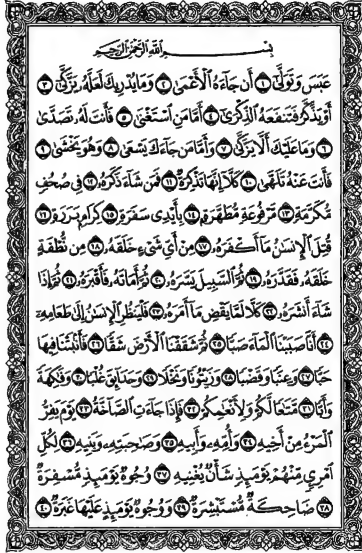 بِسْمِ اللَّهِ الرَّحْمَٰنِ الرَّحِيمِ
عَبَسَ وَتَوَلَّىٰٓ ١ أَن جَآءَهُ الْأَعْمَىٰ ٢ وَمَا يُدْرِيكَ لَعَلَّهُۥ يَزَّكَّىٰٓ ٣
أَوْ يَذَّكَّرُ فَتَنفَعَهُ الذِّكْرَىٰٓ ٤ أَمَّا مَنِ اسْتَغْنَىٰ ٥ فَأَنتَ لَهُۥ تَصَدَّىٰ
٦ وَمَا عَلَيْكَ أَلَّا يَزَّكَّىٰ ٧ وَأَمَّا مَن جَآءَكَ يَسْعَىٰ ٨ وَهُوَ يَخْشَىٰ ٩
فَأَنتَ عَنْهُ تَلَهَّىٰ ١٠ كَلَّآ إِنَّهَا تَذْكِرَةٌ ١١ فَمَن شَآءَ ذَكَرَهُۥ ١٢ فِى صُحُفٍ
مُّكَرَّمَةٍ ١٣ مَّرْفُوعَةٍ مُّطَهَّرَةٍۭ ١٤ بِأَيْدِى سَفَرَةٍ ١٥ كِرَامٍۭ بَرَرَةٍ ١٦
قُتِلَ الْإِنسَٰنُ مَآ أَكْفَرَهُۥ ١٧ مِنْ أَىِّ شَىْءٍ خَلَقَهُۥ ١٨ مِن نُّطْفَةٍ
خَلَقَهُۥ فَقَدَّرَهُۥ ١٩ ثُمَّ السَّبِيلَ يَسَّرَهُۥ ٢٠ ثُمَّ أَمَاتَهُۥ فَأَقْبَرَهُۥ ٢١ ثُمَّ إِذَا
شَآءَ أَنشَرَهُۥ ٢٢ كَلَّا لَمَّا يَقْضِ مَآ أَمَرَهُۥ ٢٣ فَلْيَنظُرِ الْإِنسَٰنُ إِلَىٰ طَعَامِهِۦٓ
٢٤ أَنَّا صَبَبْنَا الْمَآءَ صَبًّا ٢٥ ثُمَّ شَقَقْنَا الْأَرْضَ شَقًّا ٢٦ فَأَنۢبَتْنَا فِيهَا
حَبًّا ٢٧ وَعِنَبًا وَقَضْبًا ٢٨ وَزَيْتُونًا وَنَخْلًا ٢٩ وَحَدَآئِقَ غُلْبًا ٣٠ وَفَٰكِهَةً
وَأَبًّا ٣١ مَّتَٰعًا لَّكُمْ وَلِأَنْعَٰمِكُمْ ٣٢ فَإِذَا جَآءَتِ الصَّآخَّةُ ٣٣ يَوْمَ يَفِرُّ
الْمَرْءُ مِنْ أَخِيهِ ٣٤ وَأُمِّهِۦ وَأَبِيهِ ٣٥ وَصَٰحِبَتِهِۦ وَبَنِيهِ ٣٦ لِكُلِّ
امْرِئٍ مِّنْهُمْ يَوْمَئِذٍ شَأْنٌ يُغْنِيهِ ٣٧ وُجُوهٌ يَوْمَئِذٍ مُّسْفِرَةٌ
٣٨ ضَاحِكَةٌ مُّسْتَبْشِرَةٌ ٣٩ وَوُجُوهٌ يَوْمَئِذٍ عَلَيْهَا غَبَرَةٌ ٤٠